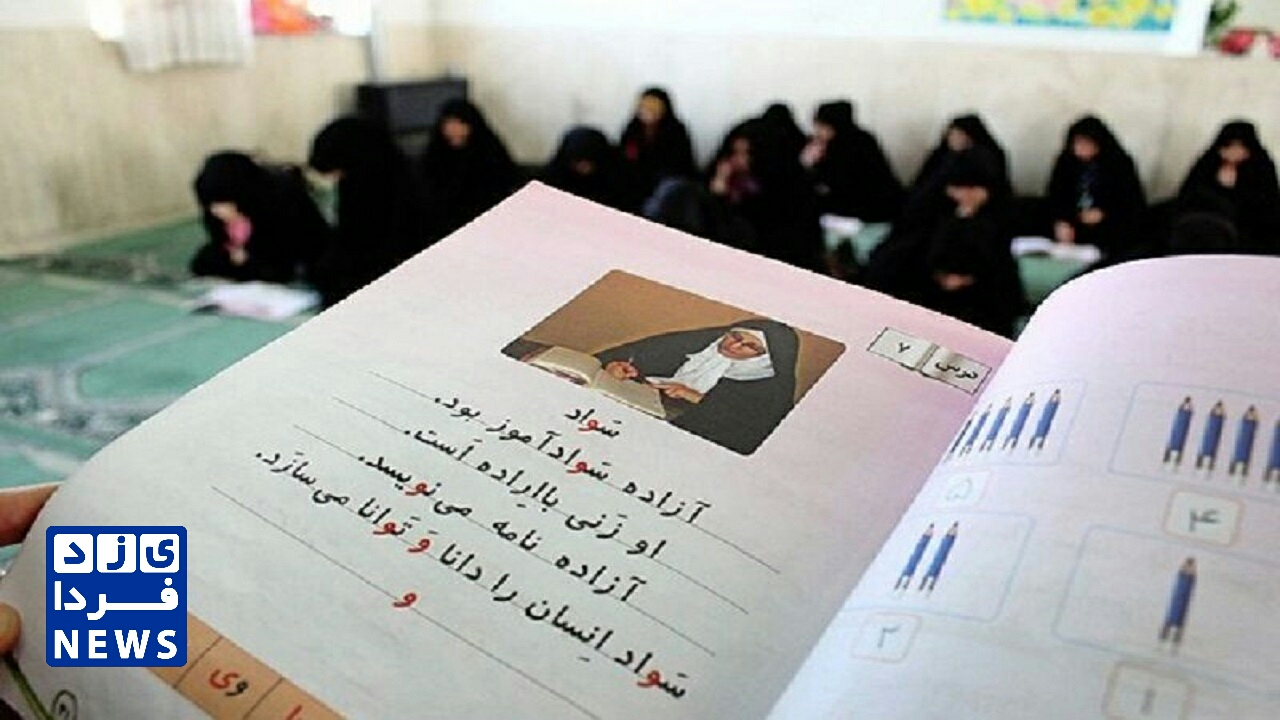 درس ۷
سَواد
آزاده سَوادآموز بود.
او زَنی بااِراده اَست.
آزاده نامه می‌نویسد.
سَواد اِنسان را دانا وَ تَوانا می‌سازَد.
و
وی
۴
۵
۱
۲
یزد
فردا
NEWS